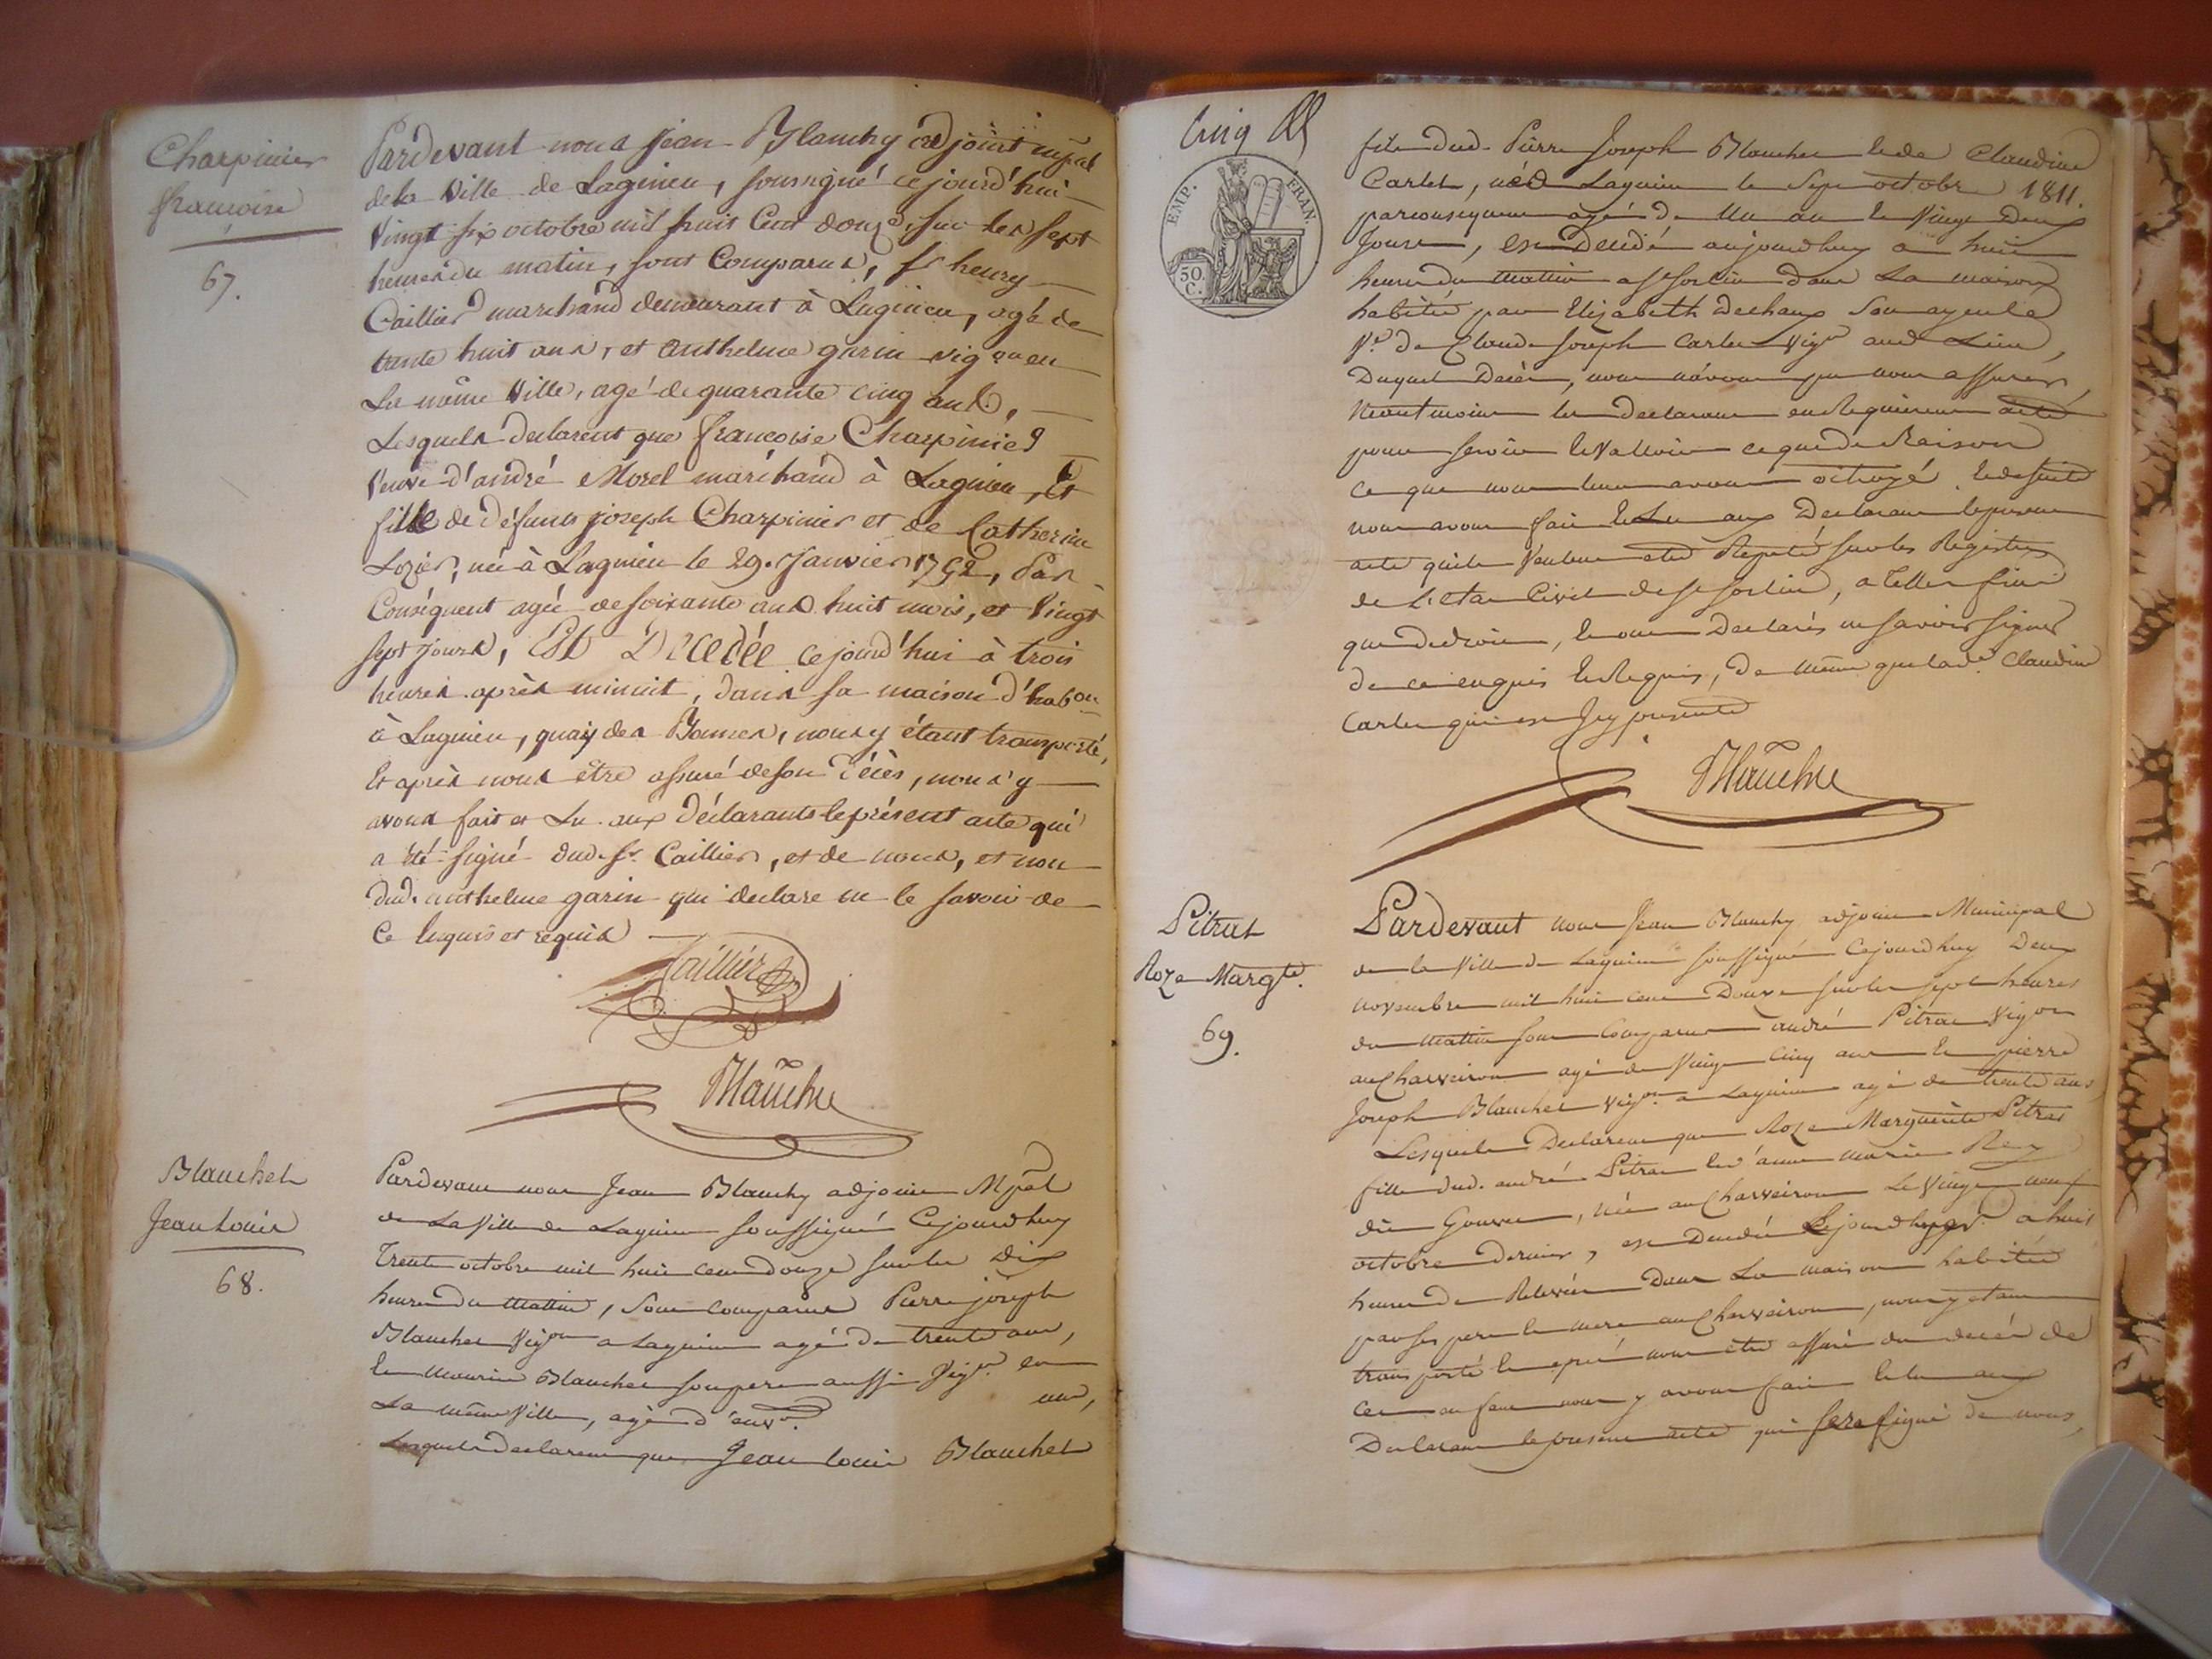 Charpinier
francoise
67.
Pardevant nous Jean Blanchy adjoint mpal
de la Ville de Lagnieu, soussigné cejourd'hui
Vingt six octobre mil huit Cent douze, sur les sept
heures du matin, sont Comparus, Sr henry
Caillier marchand demeurant à Lagnieu, agé de
trente huit ans, et anthelme garin vigon en
La même Ville, agé de quarante cinq ans,
Lesquels declarent que francoise Charpinier
Veuve d'andré Morel marchand à Lagnieu, Et
fille de défunts joseph Charpinier et de Catherine
Lozier, née à Lagnieu le 29. Janvier 1752, Par
Conséquent agée de soixante ans huit mois, et Vingt
sept jours, Est Décédée cejourd'hui à trois
heures après minuit, dans sa maison d'habon
à Lagnieu, quay des Bames, nous y étant transporté,
Et après nous être assuré de son Décès, nous y
avons fait et Lu aux Déclarants le présent acte qui
a été signé dud. Sr. Caillier, et de nous, et non
dud. anthelme garin qui declare ne le savoir de
Ce Enquis et requis
Caillier
Blanchy
Blanchet
Jean Louis
68.
Pardevant nous Jean Blanchy adjoint Mpal
de La Ville de Lagnieu soussigné Cejourdhuy
Trente octobre mil huit cent douze sur les dix
heures du Mattin, sont comparus Pierre joseph
Blanchet Vigon a Lagnieu agé de trente ans,
et Maurice Blanchet son pere aussi Vign. en
La même Ville, agé d'env. ans,
Lesquels declarent que Jean Louis Blanchet
Cinq
EMP. FRAN.
50 C.
fils dud. Pierre Joseph Blanchet et de Claudine
Carlet, né à Lagnieu le Sept octobre 1811.
par consequent agé de Un an et Vingt Deux
Jours, est decédé aujourdhuy a huit
heures du Mattin a St Sorlin dans La maison
habitée par Elizabeth Dechaux Son ayeule
Ve. de Claude Joseph Carlet Vign aud. Lieu,
Duquel Decès, nous n'avons pu nous assurer,
Neantmoins les declarans en Requierent acte
pour servir et Valloir ce que de Raison
ce que nous leur avons octroyé et de suite
nous avons fait et Lu aux Declarans le present
acte qu'ils Veulent etre Repeté sur les Registres
de L'etat Civil de St Sorlin, a telles fins
que de droit, et ont Declarés ne savoir signer
de ce enquis et Requis, De même que lad. Claudine
Carlet qui est Icy presente
Blanchy
Pitrat
Roze Margte.
69.
Pardevant nous Jean Blanchy adjoint Municipal
de la Ville de Lagnieu soussigné Cejourdhuy Deux
novembre mil huit cent Douze sur les sept heures
du Mattin sont Comparus andré Pitrat Vigon
au Charveiron agé de Vingt Cinq ans et pierre
Joseph Blanchet vign. a Lagnieu agé de trente ans,
Lesquels Declarent que Roze Marguerite Pitrat
fille dud. andré Pitrat et d'anne Marie Rey
dit , née au Charveiron Le Vingt neuf
octobre dernier, est Decedée a huit
heures de Relevée Dans La maison habitée
par ses pere et mere au Charveiron, nous y etant
transporté et aprés nous etre assuré du decés de
cet enfant nous y avons fait et lu aux
Declarans le present acte qui sera signé de nous,